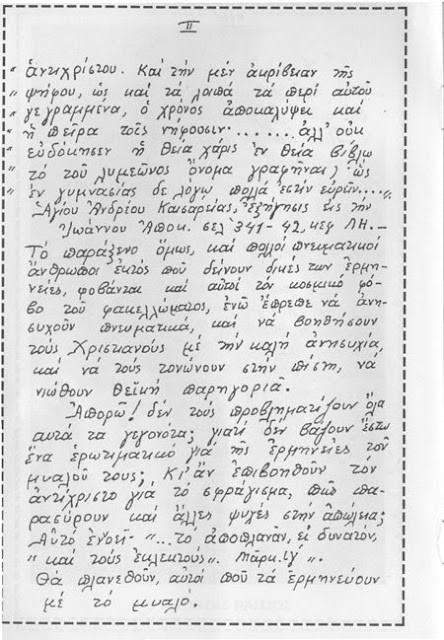 II
" ἀντιχρίστου. Καὶ τὴν μὲν ἀκρίβειαν τῆς
" ψήφου, ὡς καὶ τὰ λοιπὰ τὰ περὶ αὐτοῦ
" γεγραμμένα, ὁ χρόνος ἀποκαλύψει καὶ
" ἡ πεῖρα τοῖς νήφουσιν........ἀλλ' οὐκ
" εὐδόκησεν ἡ θεία χάρις ἐν θεία βίβλω
" τὸ τοῦ λυμεῶνος ὄνομα γραφῆναι, ὡς
" ἐν γυμνασίας δὲ λόγω πολλὰ ἐστὶν εὑρεῖν....."
Ἁγίου Ἀνδρέου Καισαρείας, Ἐξήγησις εἰς τὴν
Ἰωάννου Ἀποκ. σελ 341-42, κεφ ΛΗ.-
Τὸ παράξενο ὅμως, καὶ πολλοὶ πνευματικοὶ
ἄνθρωποι ἐκτὸς ποὺ δίνουν δικές των ἑρμη-
νεῖες, φοβάνται καὶ αὐτοὶ τὸν κοσμικὸ φό-
βο τοῦ φακελλώματος, ἐνῶ ἔπρεπε νὰ ἀνη-
συχοῦν πνευματικά, καὶ νὰ βοηθήσουν
τοὺς Χριστιανοὺς μὲ τὴν καλὴ ἀνησυχία,
καὶ νὰ τοὺς τονώνουν στὴν πίστη, νὰ
νιώθουν θεϊκὴ παρηγοριά.
Ἀπορῶ! δὲν τοὺς προβληματίζουν ὅλα
αὐτὰ τὰ γεγονότα; γιατὶ δὲν βάζουν ἔστω
ἕνα ἐρωτιματικὸ γιὰ τῆς ἑρμηνεῖες τοῦ
μυαλοῦ τους; Κι' ἂν ἐπιβοηθοῦν τὸν
ἀντίχριστο γιὰ τὸ σφράγισμα, πῶς πα-
ρασύρουν καὶ ἄλλες ψυχὲς στὴν ἀπώλεια;
Αὐτὸ ἐνοεῖ- "...τὸ ἀποπλανᾶν, εἰ δυνατόν,
" καὶ τοὺς ἐκλεκτούς". Μάρκ. ιγ´ ".
Θὰ πλανεθοῦν, αὐτοὶ ποὺ τὰ ἑρμηνεύουν
μὲ τὸ μυαλό.